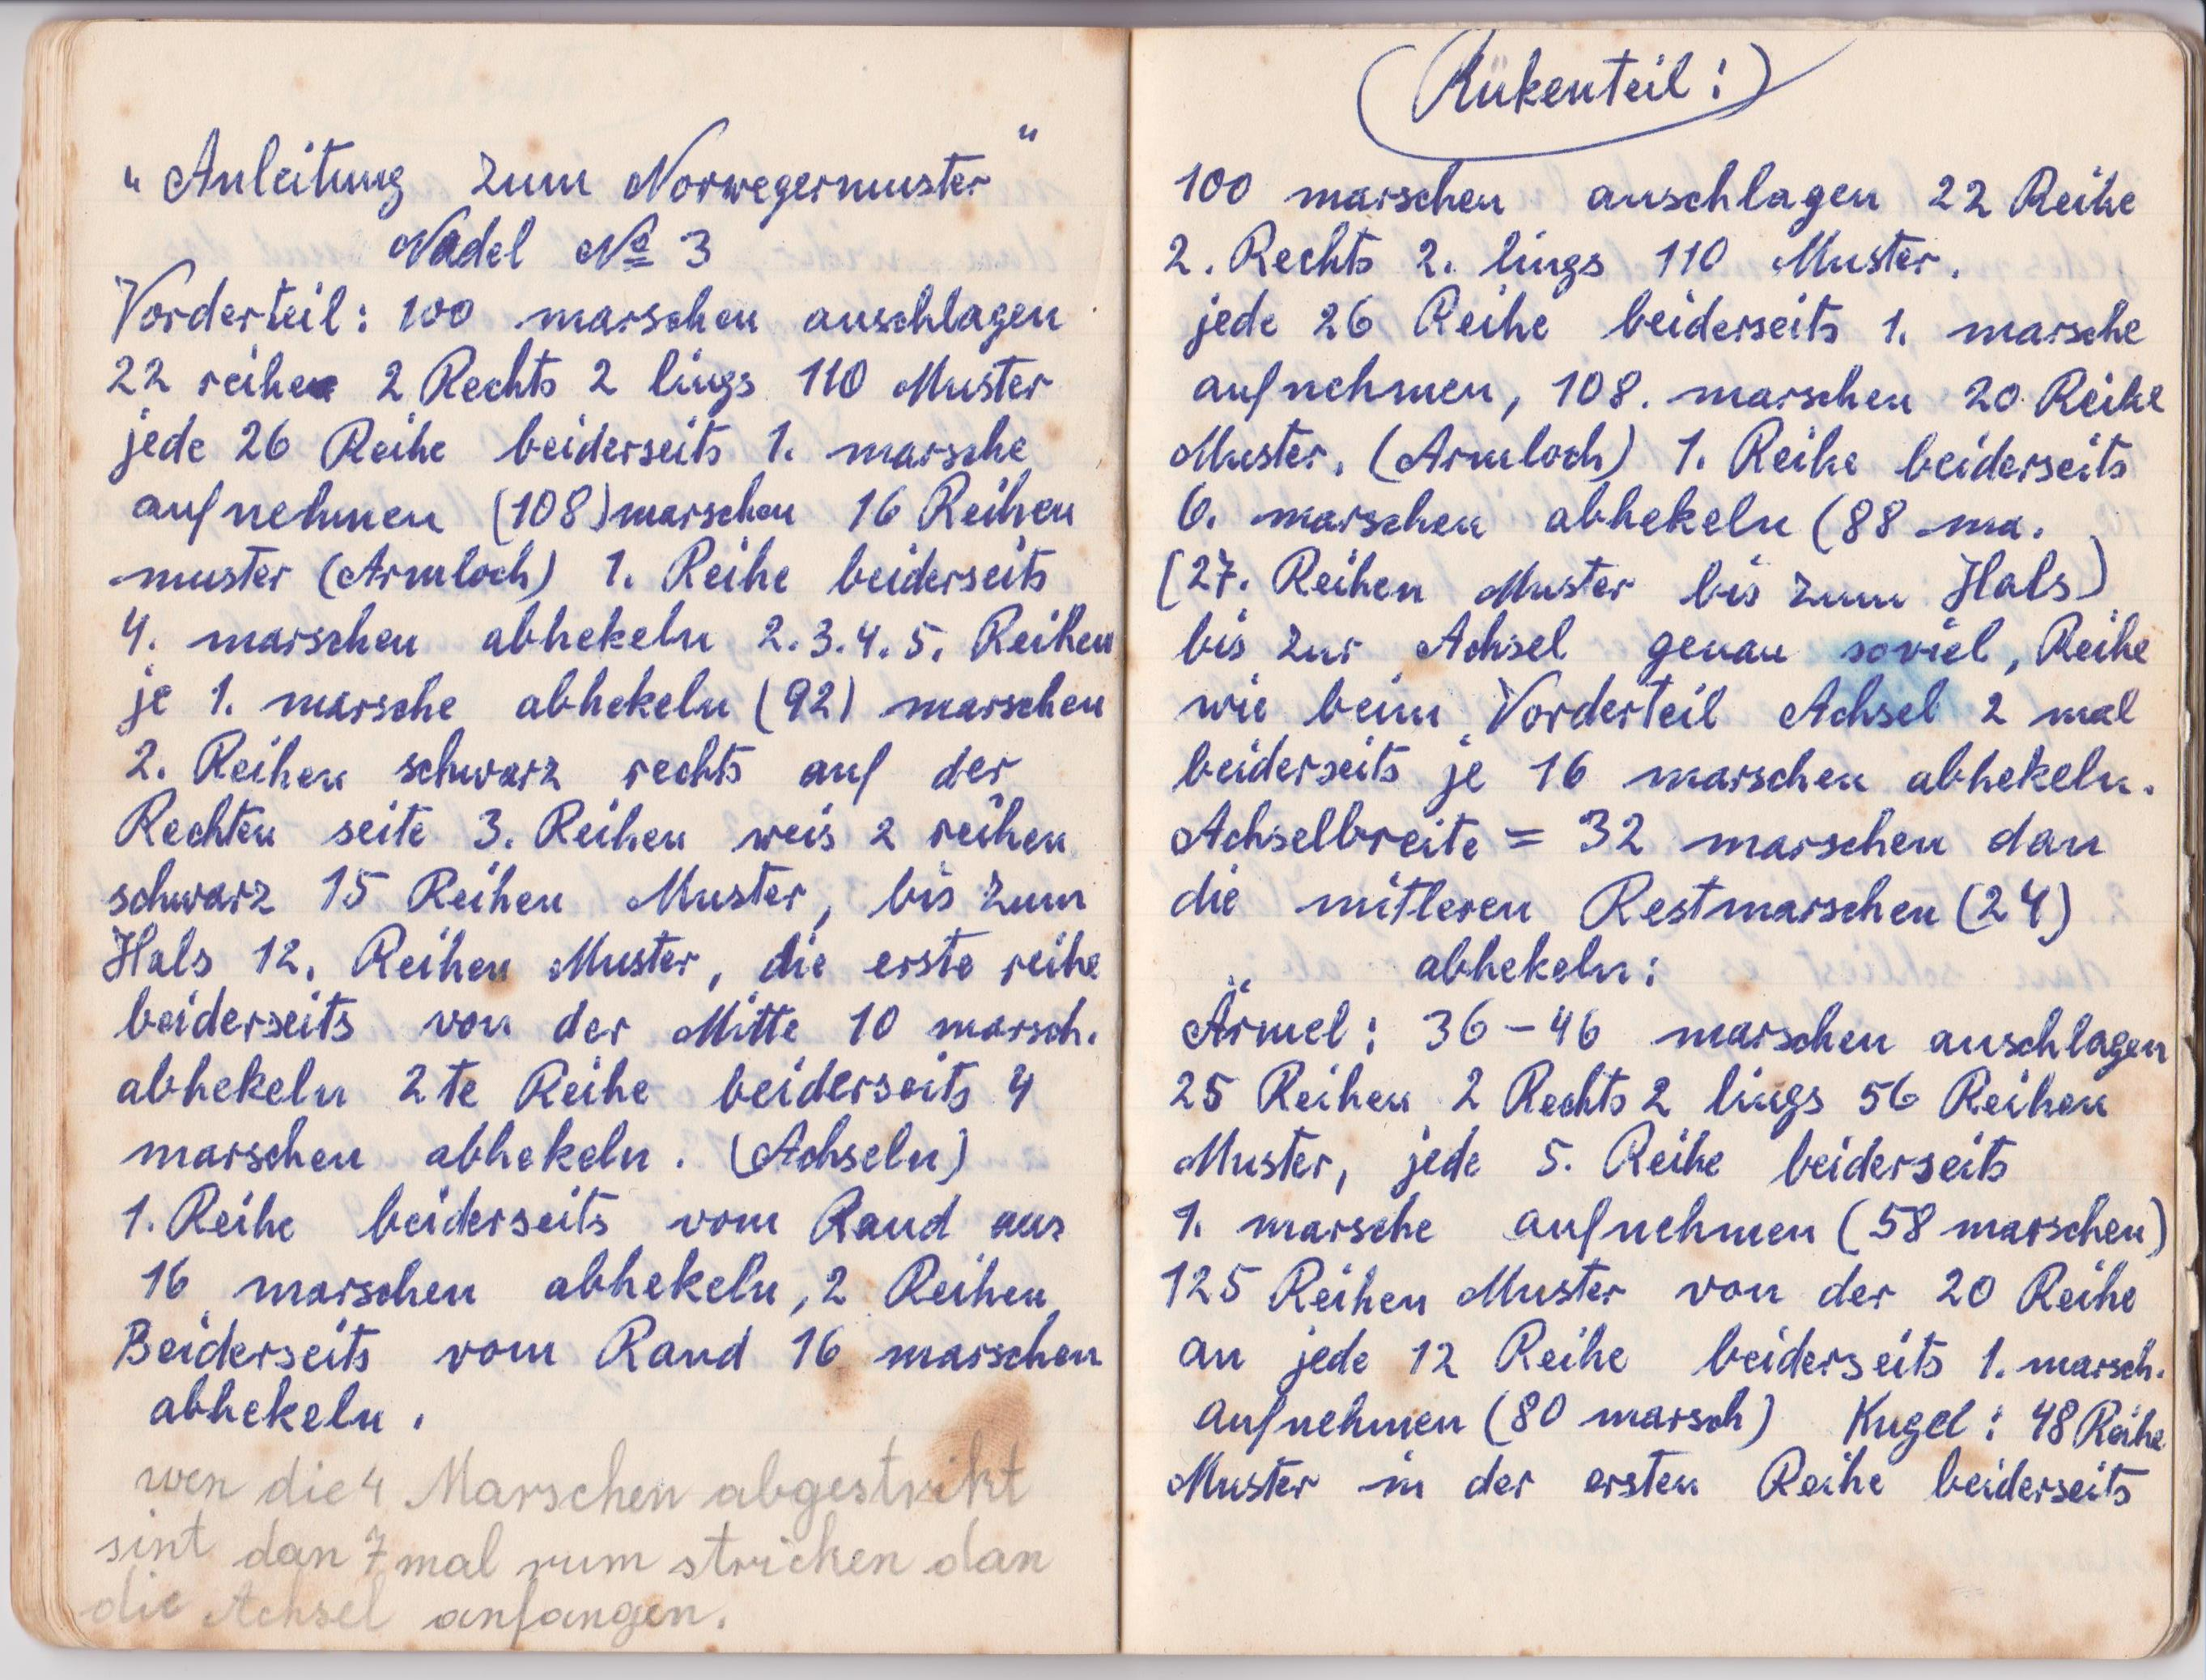 „Anleitung zum Norwegermuster“
Nadel № 3
Vorderteil: 100 marschen anschlagen
22 reihen 2 Rechts 2 lings 110 Muster
jede 26 Reihe beiderseits 1. marsche
aufnehmen (108) marschen 16 Reihen
muster (Armloch) 1. Reihe beiderseits
4. marschen abhekeln 2.3.4.5. Reihen
je 1. marsche abhekeln (92) marschen
2. Reihen schwarz rechts auf der
Rechten seite 3. Reihen weis 2 reihen
schwarz 15 Reihen Muster, bis zum
Hals 12. Reihen Muster, die erste reihe
beiderseits von der Mitte 10 marsch.
abhekeln 2te Reihe beiderseits 4
marschen abhekeln. (Achseln)
1. Reihe beiderseits vom Rand aus
16 marschen abhekeln, 2 Reihen
Beiderseits vom Rand 16 marschen
abhekeln.
wen die 4 Marschen abgestrikt
sint dan 7 mal rum stricken dan
die Achsel anfangen.
(Rükenteil:)
100 marschen anschlagen 22 Reihe
2. Rechts 2. lings 110 Muster.
jede 26 Reihe beiderseits 1. marsche
aufnehmen, 108. marschen 20 Reihe
Muster, (Armloch) 1. Reihe beiderseits
6. marschen abhekeln (88 ma.
[27. Reihen Muster bis zum Hals)
bis zur Achsel genau soviel, Reihe
wie beim Vorderteil Achsel 2 mal
beiderseits je 16 marschen abhekeln.
Achselbreite = 32 marschen dan
die mitleren Restmarschen (24)
abhekeln:
Ärmel: 36 – 46 marschen anschlagen
25 Reihen 2 Rechts 2 lings 56 Reihen
Muster, jede 5. Reihe beiderseits
1. marsche aufnehmen (58 marschen)
125 Reihen Muster von der 20 Reihe
an jede 12 Reihe beiderseits 1. marsch.
aufnehmen (80 marsch) Kugel: 48 Reihe
Muster in der ersten Reihe beiderseits